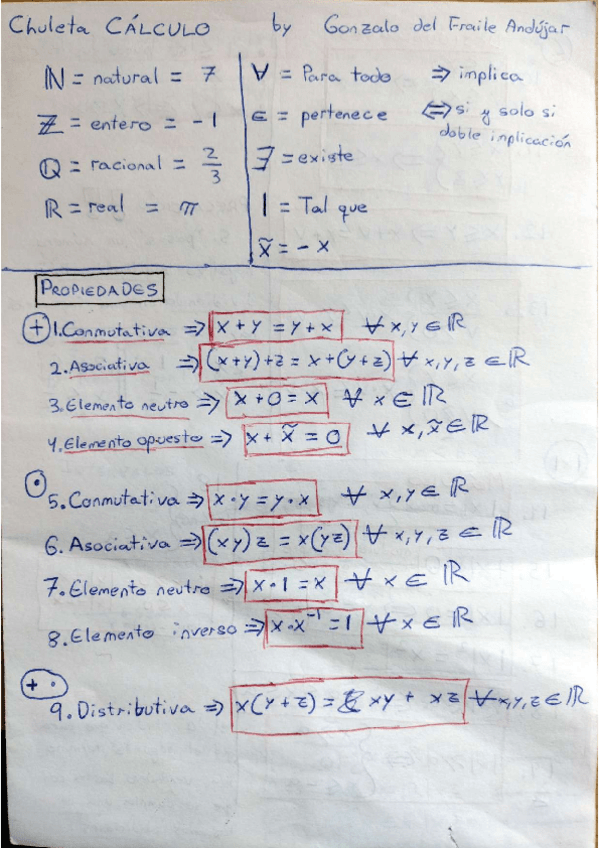 Chuleta CÁLCULO by Gonzalo del Fraile Andújar
ℕ = natural = 7
ℤ = entero = -1
ℚ = racional = 2/3
ℝ = real = π
∀ = Para todo
∈ = pertenece
∃ = existe
| = Tal que
x̃ = - x
⇒ implica
⇔ si y solo si
doble implicación
PROPIEDADES
+ 1. Conmutativa ⇒ x + y = y + x ∀ x, y ∈ ℝ
2. Asociativa ⇒ (x+y)+z = x+(y+z) ∀ x, y, z ∈ ℝ
3. Elemento neutro ⇒ x + 0 = x ∀ x ∈ ℝ
4. Elemento opuesto ⇒ x + x̃ = 0 ∀ x, x̃ ∈ ℝ
• 5. Conmutativa ⇒ x · y = y · x ∀ x, y ∈ ℝ
6. Asociativa ⇒ (xy) z = x(yz) ∀ x, y, z ∈ ℝ
7. Elemento neutro ⇒ x · 1 = x ∀ x ∈ ℝ
8. Elemento inverso ⇒ x · x⁻¹ = 1 ∀ x ∈ ℝ
+ ·
9. Distributiva ⇒ x(y + z) = xy + xz ∀ x, y, z ∈ ℝ